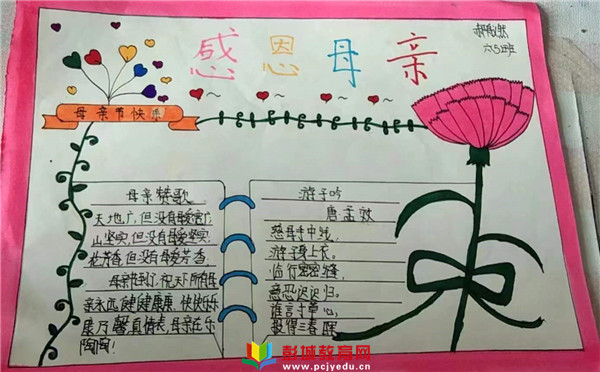 感恩母亲
母亲节快乐
母亲赞歌
天地广,但没有母爱宽广,
山坚实,但没有母爱坚实,
花芳香,但没有母爱芳香,
母亲节到了,祝天下所有母
亲永远健健康康,快快乐乐
康乃馨真情长,母亲在乐
陶陶!
游子吟
唐 孟效
慈母手中线,
游子身上衣。
临行密密缝,
意恐迟迟归。
谁言寸草心,
报得三春晖
彭城教育网
www.pcjyedu.cn